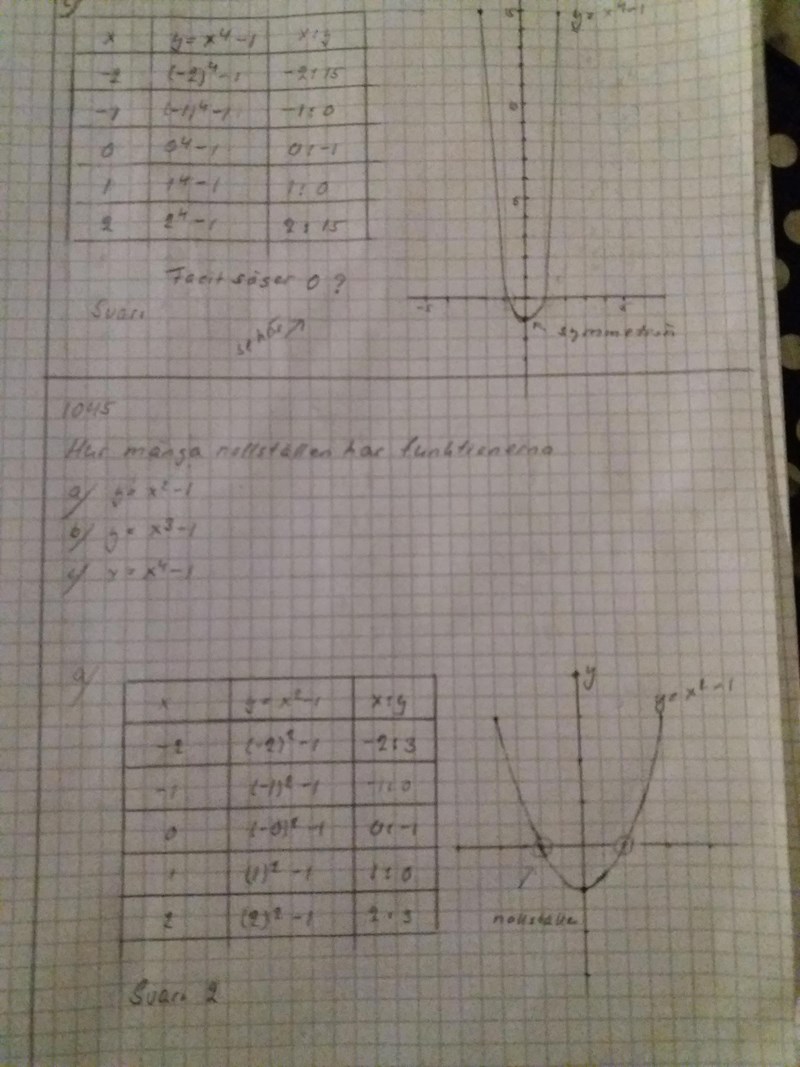 c)
x y = x⁴-1 x:y
-2 (-2)⁴-1 -2:15
-1 (-1)⁴-1 -1:0
0 0⁴-1 0:-1
1 1⁴-1 1:0
2 2⁴-1 2:15
y = x⁴-1
15
5
-5 5
symmetrin
Facit säger 0?
Svar:
1045
Hur många nollställen har funktionerna
a) y = x²-1
b) y = x³-1
c) y = x⁴-1
a)
x y = x²-1 x:y
-2 (-2)²-1 -2:3
-1 (-1)²-1 -1:0
0 (-0)²-1 0:-1
1 (1)²-1 1:0
2 (2)²-1 2:3
y
y = x²-1
nollställe
Svar: 2